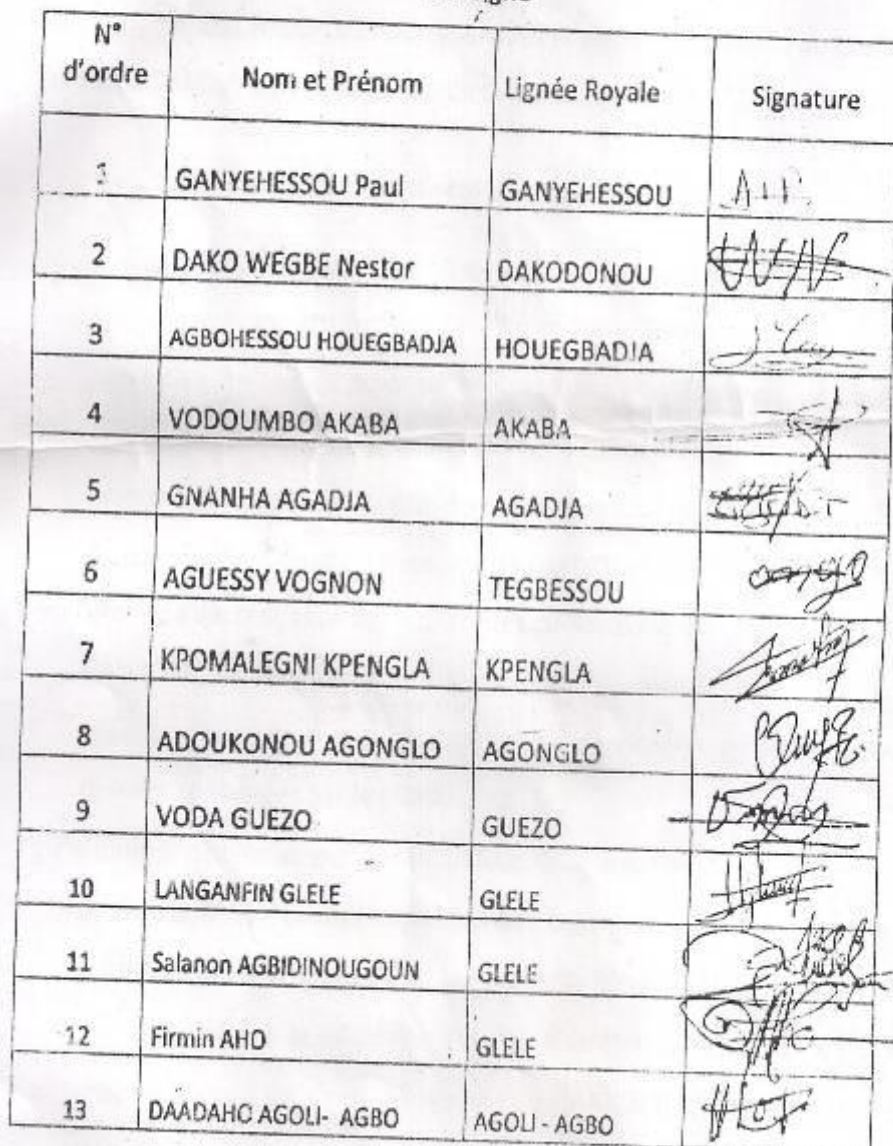 N° d'ordre Nom et Prénom Lignée Royale Signature
1 GANYEHESSOU Paul GANYEHESSOU
2 DAKO WEGBE Nestor DAKODONOU
3 AGBOHESSOU HOUEGBADJA HOUEGBADJA
4 VODOUMBO AKABA AKABA
5 GNANHA AGADJA AGADJA
6 AGUESSY VOGNON TEGBESSOU
7 KPOMALEGNI KPENGLA KPENGLA
8 ADOUKONOU AGONGLO AGONGLO
9 VODA GUEZO GUEZO
10 LANGANFIN GLELE GLELE
11 Salanon AGBIDINOUGOUN GLELE
12 Firmin AHO GLELE
13 DAADAHO AGOLI- AGBO AGOLI - AGBO